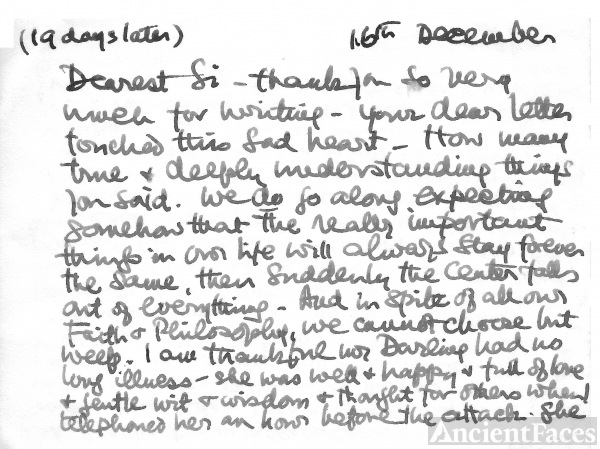 (19 days later) 16th December
Dearest Si - thank you so very
much for writing - your dear letter
touched this sad heart - How many
true & deeply understanding things
you said. We do go along expecting
somehow that the really important
things in our life will always stay forever
the same, then suddenly the center falls
out of everything - And in spite of all our
Faith & Philosophy, we cannot choose but
weep. I am thankful our Darling had no
long illness - she was well & happy & full of love
& gentle wit & wisdom & thought for others when I
telephoned her an hour before the attack. She
AncientFaces